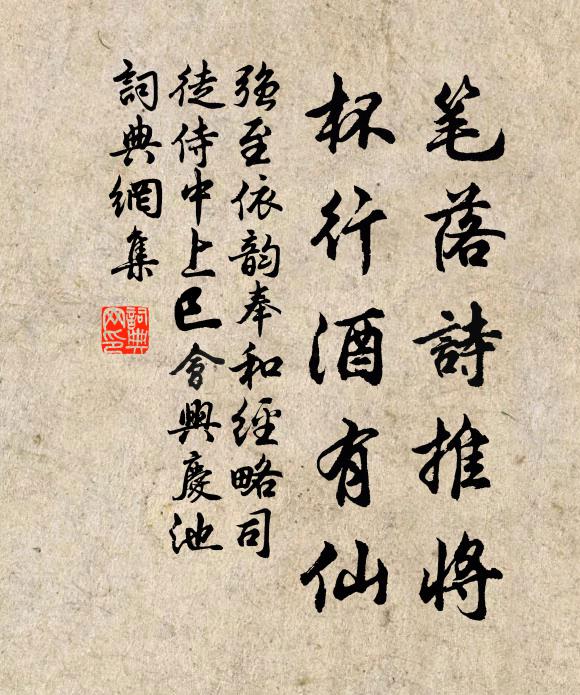 笔落詩推將
杯行酒有仙
強至依韵奉和經略司
徒侍中上巳會興慶池
詞典網集
詞典
网印